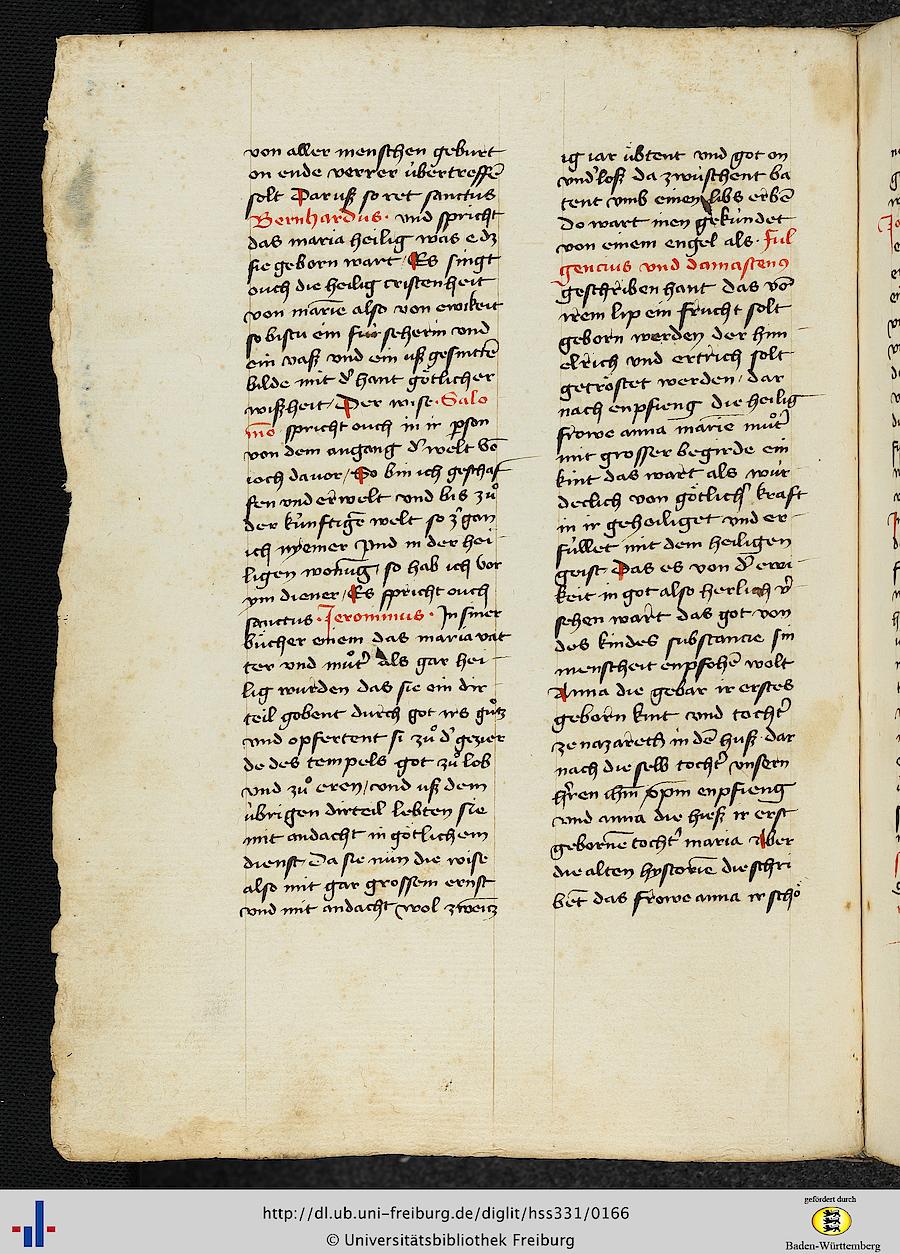 von aller menschen geburt
on ende verrer übertreffē
solt Daruß so ret sanctus
Bernhardus · vnd spricht
das maria heilig was e dz
sie geborn wart / Es singt
ouch die heilig cristenheit
von marīe also von ewikeit
so bistu ein für seherin vnd
ein vaß vnd ein uß gesnittē
bilde mit d' hant götlicher
wißheit / Der wise · Salo
mō spricht ouch in ir pson
von dem angang d' welt vō
ioch davor / So bin ich geschaf
fen vnd erwelt vnd bis zů
der künftigē welt so z'gan
ich nyemer vnd in der hei
ligen wonūg / so hab ich vor
ym diener / Es spricht ouch
sanctus · Jeronimus · In siner
bücher einem das maria vat
ter vnd můt' als gar hei –
lig wurden das sie ein dir –
teil gobent durch got irs gůtz
vnd opfertent si zů d' gezier
de des tempels got zů lob
vnd zů eren / vnd uß dem
übrigen dirteil lebten sie
mit andacht in götlichem
dienst Da sie nün die wise
also mit gar grossem ernst
vnd mit andacht wol zwentz
ig iar übtent vnd got on
vnd'loß da zwüschent ba
tent vmb einen libs erbē
do wart inen gekündet
von einem engel als · ful
gencius vnd damascen9
geschriben hant das vō
irem lip ein frucht solt
geborn werden der him –
elrich vnd ertrich solt
getröstet werden / dar
nach enpfieng die heilig
frowe anna marīe můt'
mit grosser begirde ein
kint das wart als wür –
declich von götlich' kraft
in ir geheiliget vnd er –
füllet mit dem heiligen
geist Das es von d' ewi
keit in got also herlich v'
sehen wart das got von
des kindes substancie sin
menscheit enpfohē wolt
Anna die gebar ir erstes
geborn kint vnd tocht'
ze nazareth in dē huß · dar
nach die selb tocht' vnsern
h'ren ihm xpm enpfieng
vnd anna die hieß ir erst
gebornē tocht' maria Aber
die alten hystoriē die schri
bēt das frowe anna ir schö
http://dl.ub.uni-freiburg.de/diglit/hss331/0166
© Universitätsbibliothek Freiburg
gefördert durch
Baden-Württemberg